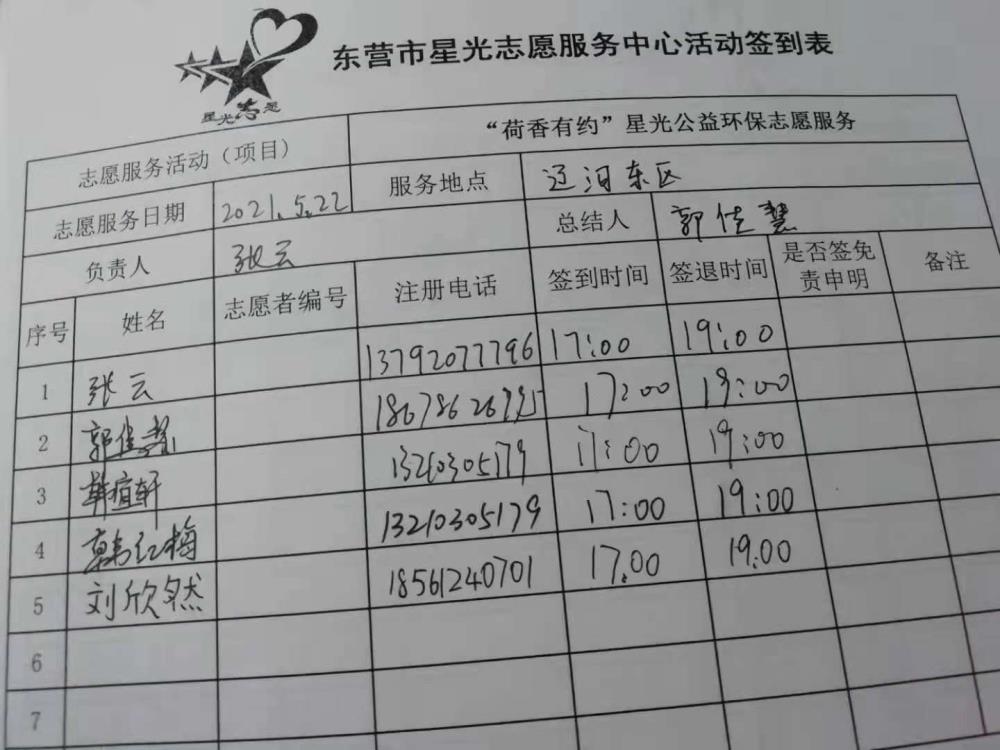 星光志愿
东营市星光志愿服务中心活动签到表
志愿服务活动（项目） “荷香有约”星光公益环保志愿服务
志愿服务日期 2021.5.22 服务地点 辽河东区
负责人 张云 总结人 郭佳慧
序号 姓名 志愿者编号 注册电话 签到时间 签退时间 是否签免责申明 备注
1 张云 13792077796 17:00 19:00
2 郭佳慧 18678626795 17:00 19:00
3 韩瑄轩 13210305179 17:00 19:00
4 韩红梅 13210305179 17:00 19:00
5 刘欣然 18561240701 17.00 19.00
6
7